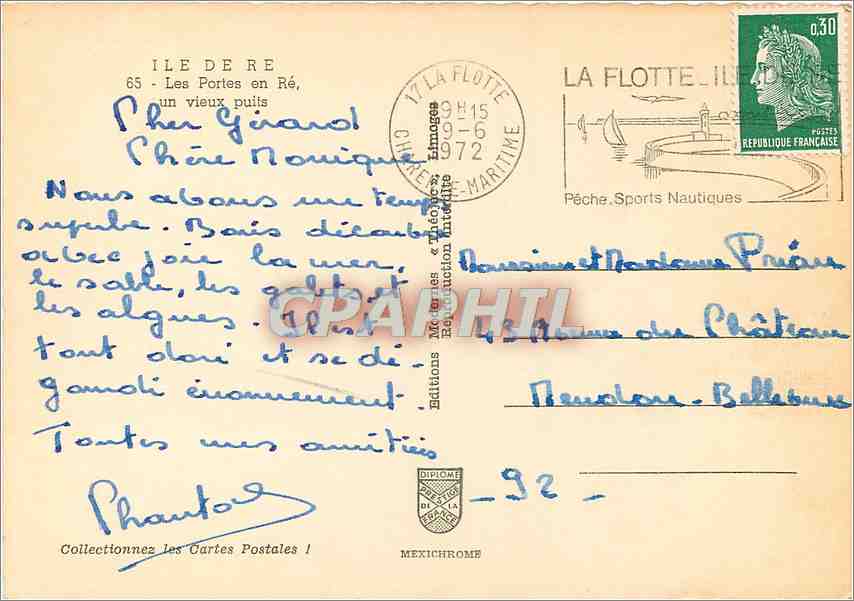 ILE DE RE
65 - Les Portes en Ré,
un vieux puits
Cher Gérard
Chère Monique
Nous avons un temps
superbe. Boris découvre
avec joie la mer,
le sable, les galets et
les algues. Il est
tout doré et se dé-
gourdi énormement.
Toutes mes amitiés
Collectionnez les Cartes Postales !
Editions Modernes « Théojac », Limoges
Reproduction interdite
17 LA FLOTTE
9H15
9-6
1972
CHARENTE-MARITIME
LA FLOTTE_ILE DE RE
Pêche.Sports Nautiques
0,30
POSTES
REPUBLIQUE FRANÇAISE
Monsieur et Madame
43 Avenue du Château
Meudon-Bellevue
_92_
DIPLOME
PRESTIGE
DE LA
FRANCE
MEXICHROME
CPAPHIL